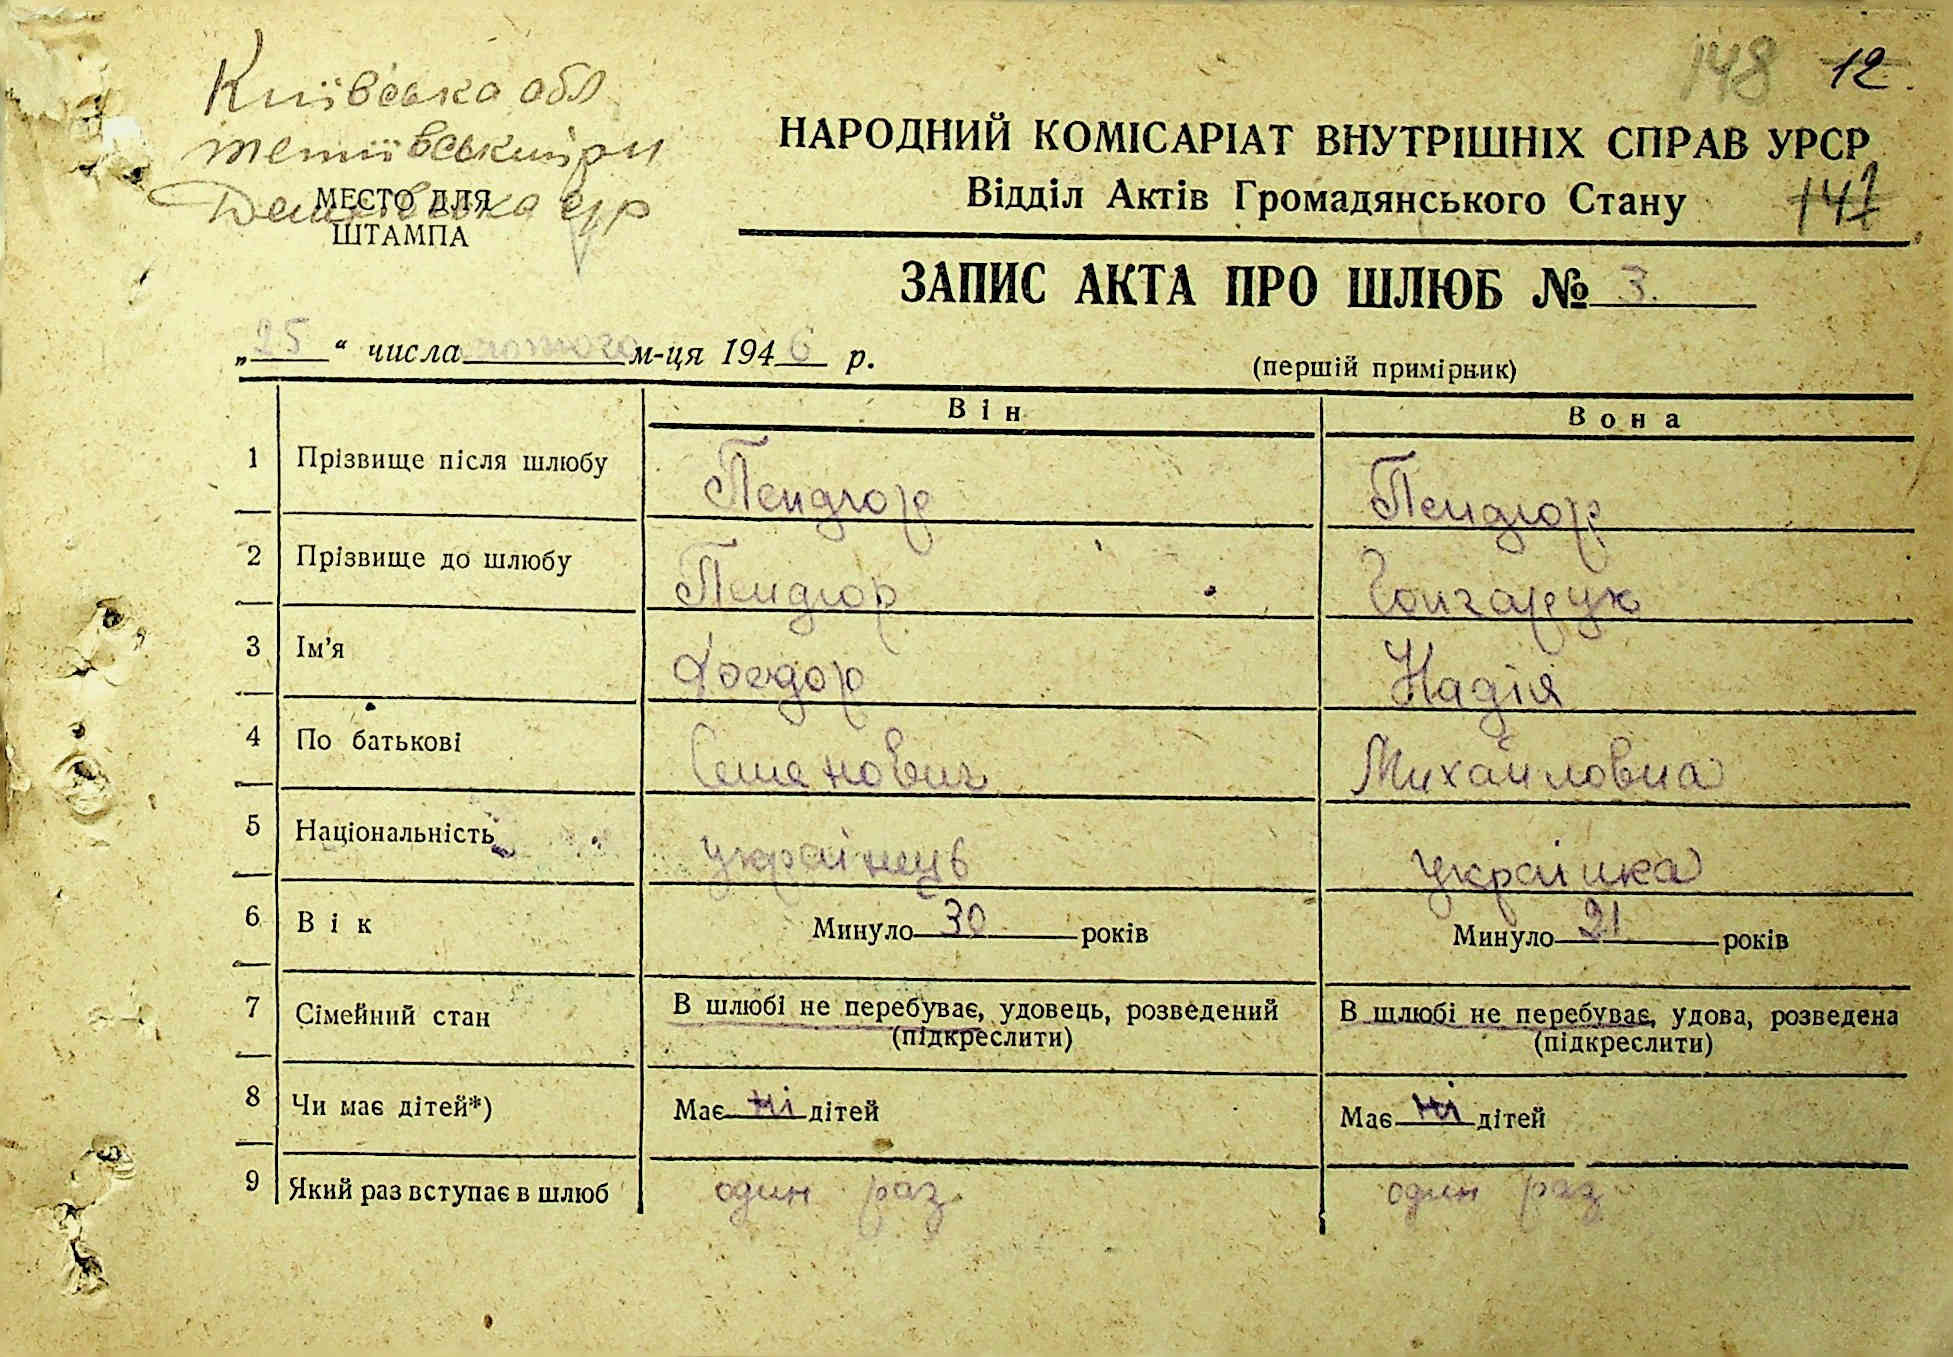 148 12.
Київська обл
тетіївський рн
МЕСТО ДЛЯ
ШТАМПА
НАРОДНИЙ КОМІСАРІАТ ВНУТРІШНІХ СПРАВ УРСР
Відділ Актів Громадянського Стану
147
ЗАПИС АКТА ПРО ШЛЮБ № 3.
„25“ числа лютого м-ця 1946 р.
(перший примірник)
Він Вона
1 Прізвище після шлюбу Пендюр Пендюр
2 Прізвище до шлюбу Пендюр Гончарук
3 Ім’я Фоедор Надія
4 По батькові Семенович Михайловна
5 Національність українець українка
6 Вік Минуло 30 років Минуло 21 років
7 Сімейний стан В шлюбі не перебуває, удовець, розведений В шлюбі не перебуває, удова, розведена
(підкреслити) (підкреслити)
8 Чи має дітей*) Має ні дітей Має ні дітей
9 Який раз вступає в шлюб один раз один раз